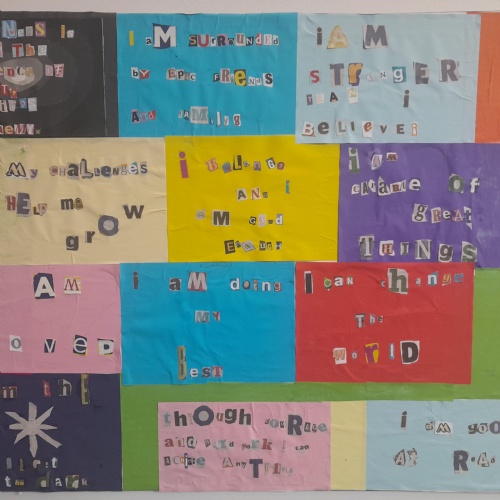 I AM SURROUNDED
BY EPIC FRIENDS
AND FAMILY
I AM
STRONGER
THAN I
BELIEVE!
MY CHALLENGES
HELP ME
GROW
I BELONG
AND I
AM GOOD
ENOUGH
I AM
CAPABLE OF
GREAT
THINGS
AM
OVED
i AM DOING
MY
BEST
I can change
The
WORLD
m the
the dark
through courage
and hard work I can
achieve AnyThing
i am goo
At Rea